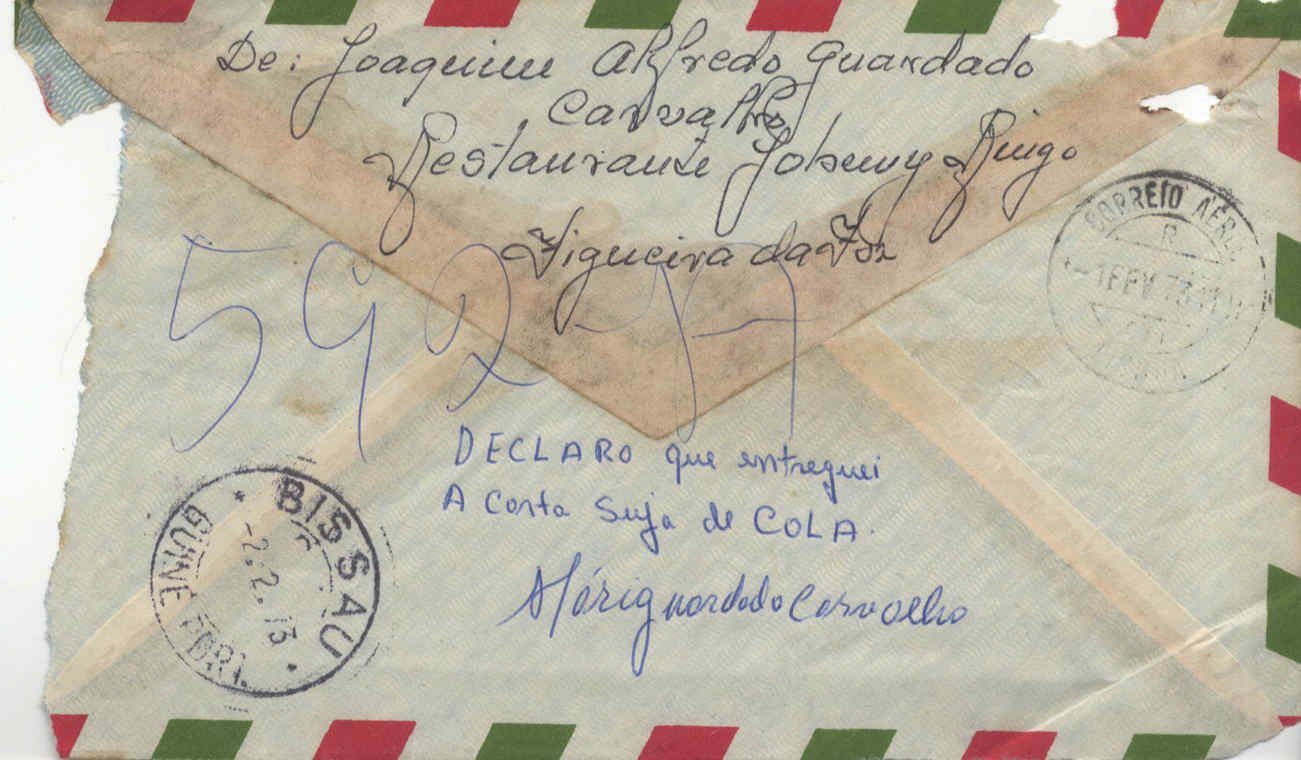 De: Joaquim Alfredo Guardado
Carvalho
Restaurante Johnny Ringo
Figueira da Foz
CORREIO AÉREO
R
-1 FEV 73
592
DECLARO que entreguei
A Costa Suja de COLA.
guardado Carvalho
BISSAU
-2.2.73
GUINÉ PORT.